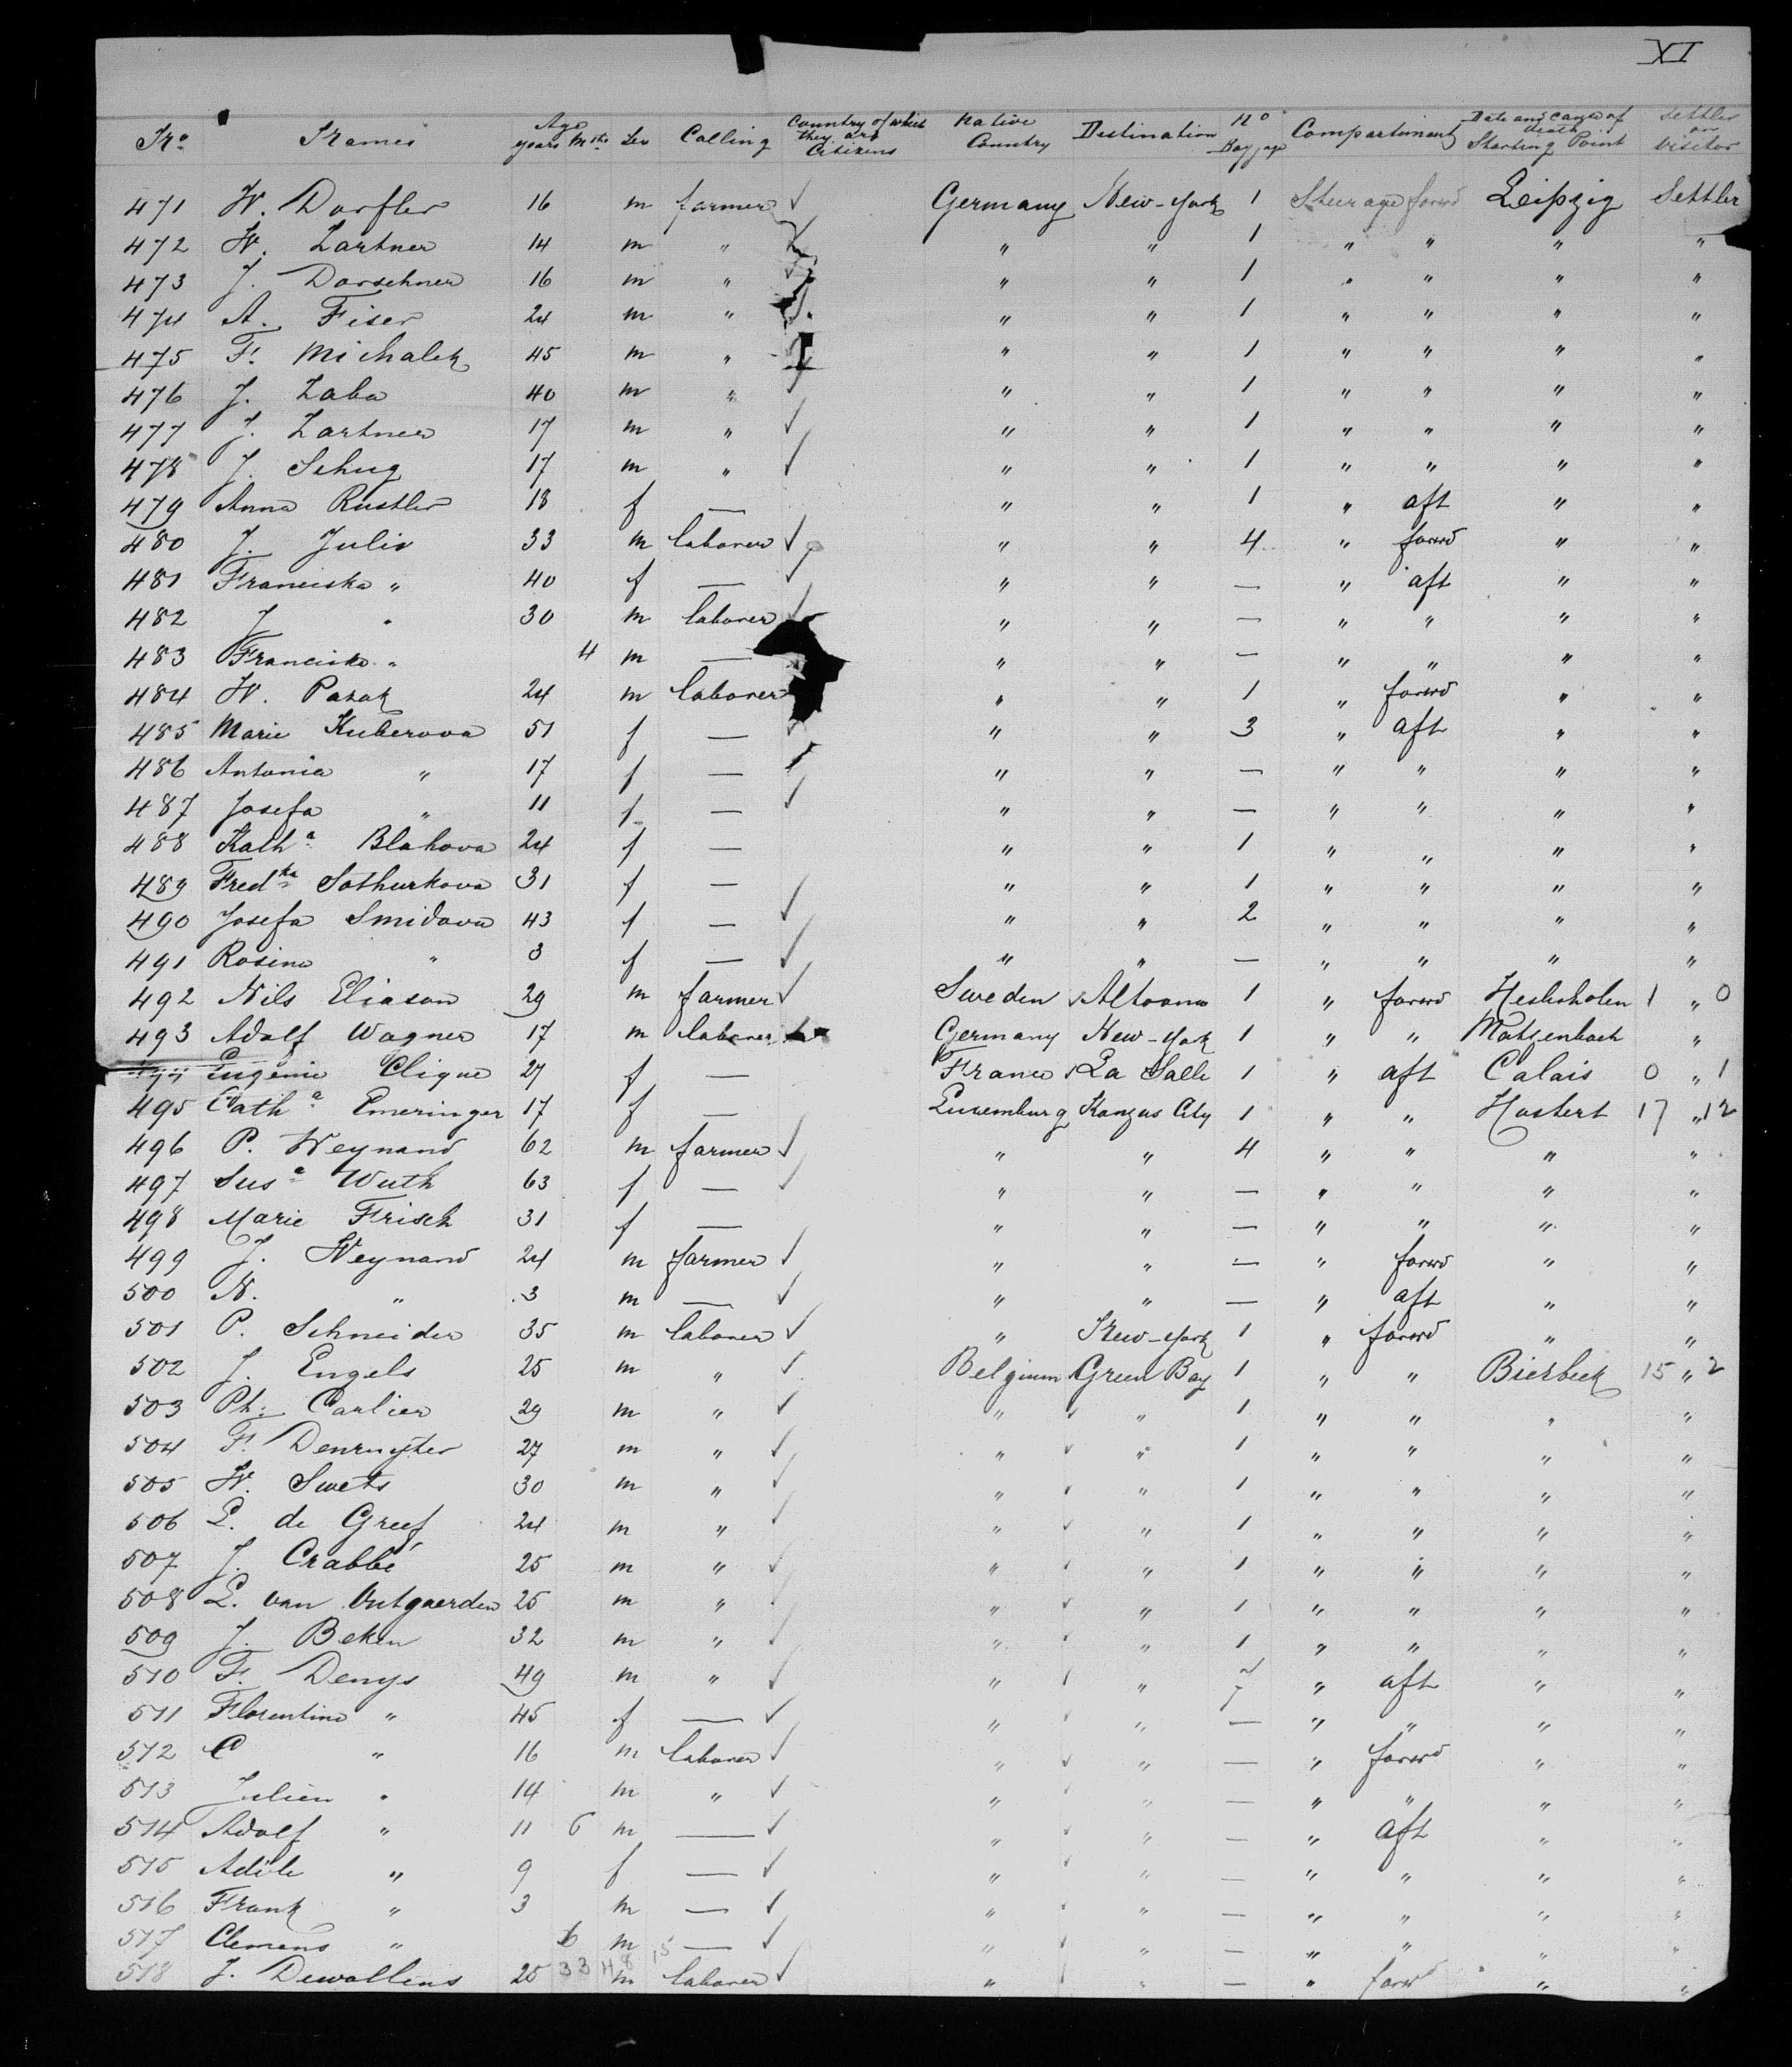 XI
No. Names Age years Mths Sex Calling Country of which they are Citizens Native Country Destination No Baggage Compartiment Date and cause of death Starting Point Settler or Visitor
471 W. Dorfler 16 m farmer ✓ Germany New-York 1 Steerage forwd Leipzig Settler
472 W. Zartner 14 m " " " 1 " " " "
473 J. Dorschner 16 m " " " 1 " " " "
474 A. Fiser 24 m " " " 1 " " " "
475 F. Michalek 45 m " " " 1 " " " "
476 J. Zaba 40 m " ✓ " " 1 " " " "
477 J. Zartner 17 m " ✓ " " 1 " " " "
478 J. Schug 17 m " ✓ " " 1 " " " "
479 Anna Rustler 18 f — " " 1 " aft " "
480 J. Julis 33 m laborer ✓ " " 4 " forwd " "
481 Franciska " 40 f — ✓ " " — " aft " "
482 J " 30 m laborer ✓ " " — " " " "
483 Franciska " 4 m — " " — " " " "
484 W. Pazak 24 m laborer " " 1 " forwd " "
485 Marie Kuberova 51 f — ✓ " " 3 " aft " "
486 Antonia " 17 f — ✓ " " — " " " "
487 Josefa " 11 f — ✓ " " — " " " "
488 Katha Blahova 24 f — " " 1 " " " "
489 Fredka Sothurkova 31 f — " " 1 " " " "
490 Josefa Smidova 43 f — ✓ " " 2 " " " "
491 Rosina " 3 f — ✓ " " — " " " "
492 Nils Eliason 29 m farmer ✓ Sweden ✓ Altoona 1 " forwd 1 " 0
493 Adolf Wagner 17 m laborer Germany New-York 1 " " Matzenbach "
494 Eugenie Clique 27 f — France ✓ La Salle 1 " aft Calais 0 " 1
495 Catha Emeringer 17 f — Luxemburg Kanzas City 1 " " Hostert 17 " 12
496 P. Weynand 62 m farmer ✓ " " 4 " " " "
497 Susa Wuth 63 f — ✓ " " — " " " "
498 Marie Frisch 31 f — " " — " " " "
499 J. Weynand 24 m farmer ✓ " " — " forwd " "
500 N. " 3 m — ✓ " " — " aft " "
501 P. Schneider 35 m laborer ✓ " New-York 1 " forwd " "
502 J. Engels 25 m " ✓ Belgium Green Bay 1 " " Bierbeek 15 " 2
503 Ph: Carlier 29 m " ✓ " ✓ " 1 " " " "
504 F. Denruyter 27 m " ✓ " ✓ " 1 " " " "
505 W. Swets 30 m " ✓ " ✓ " 1 " " " "
506 L. de Greef 24 m " ✓ " ✓ " 1 " " " "
507 J. Crabbé 25 m " ✓ " ✓ " 1 " " " "
508 L. van Outgaerden 25 m " ✓ " ✓ " 1 " " " "
509 J. Beken 32 m " ✓ " ✓ " 1 " " " "
510 F. Denys 49 m " ✓ " ✓ " 7 " aft " "
511 Florentine " 45 f — ✓ " ✓ " — " " " "
512 C " 16 m laborer ✓ " ✓ " — " forwd " "
513 Julien " 14 m " ✓ " ✓ " — " " " "
514 Adolf " 11 6 m — ✓ " ✓ " — " aft " "
515 Adèle " 9 f — ✓ " ✓ " — " " " "
516 Frank " 3 m — ✓ " " — " " " "
517 Clemens " 6 m — ✓ " " — " " " "
518 J. Dewallens 25 m laborer ✓ " ✓ " — " forwd " "